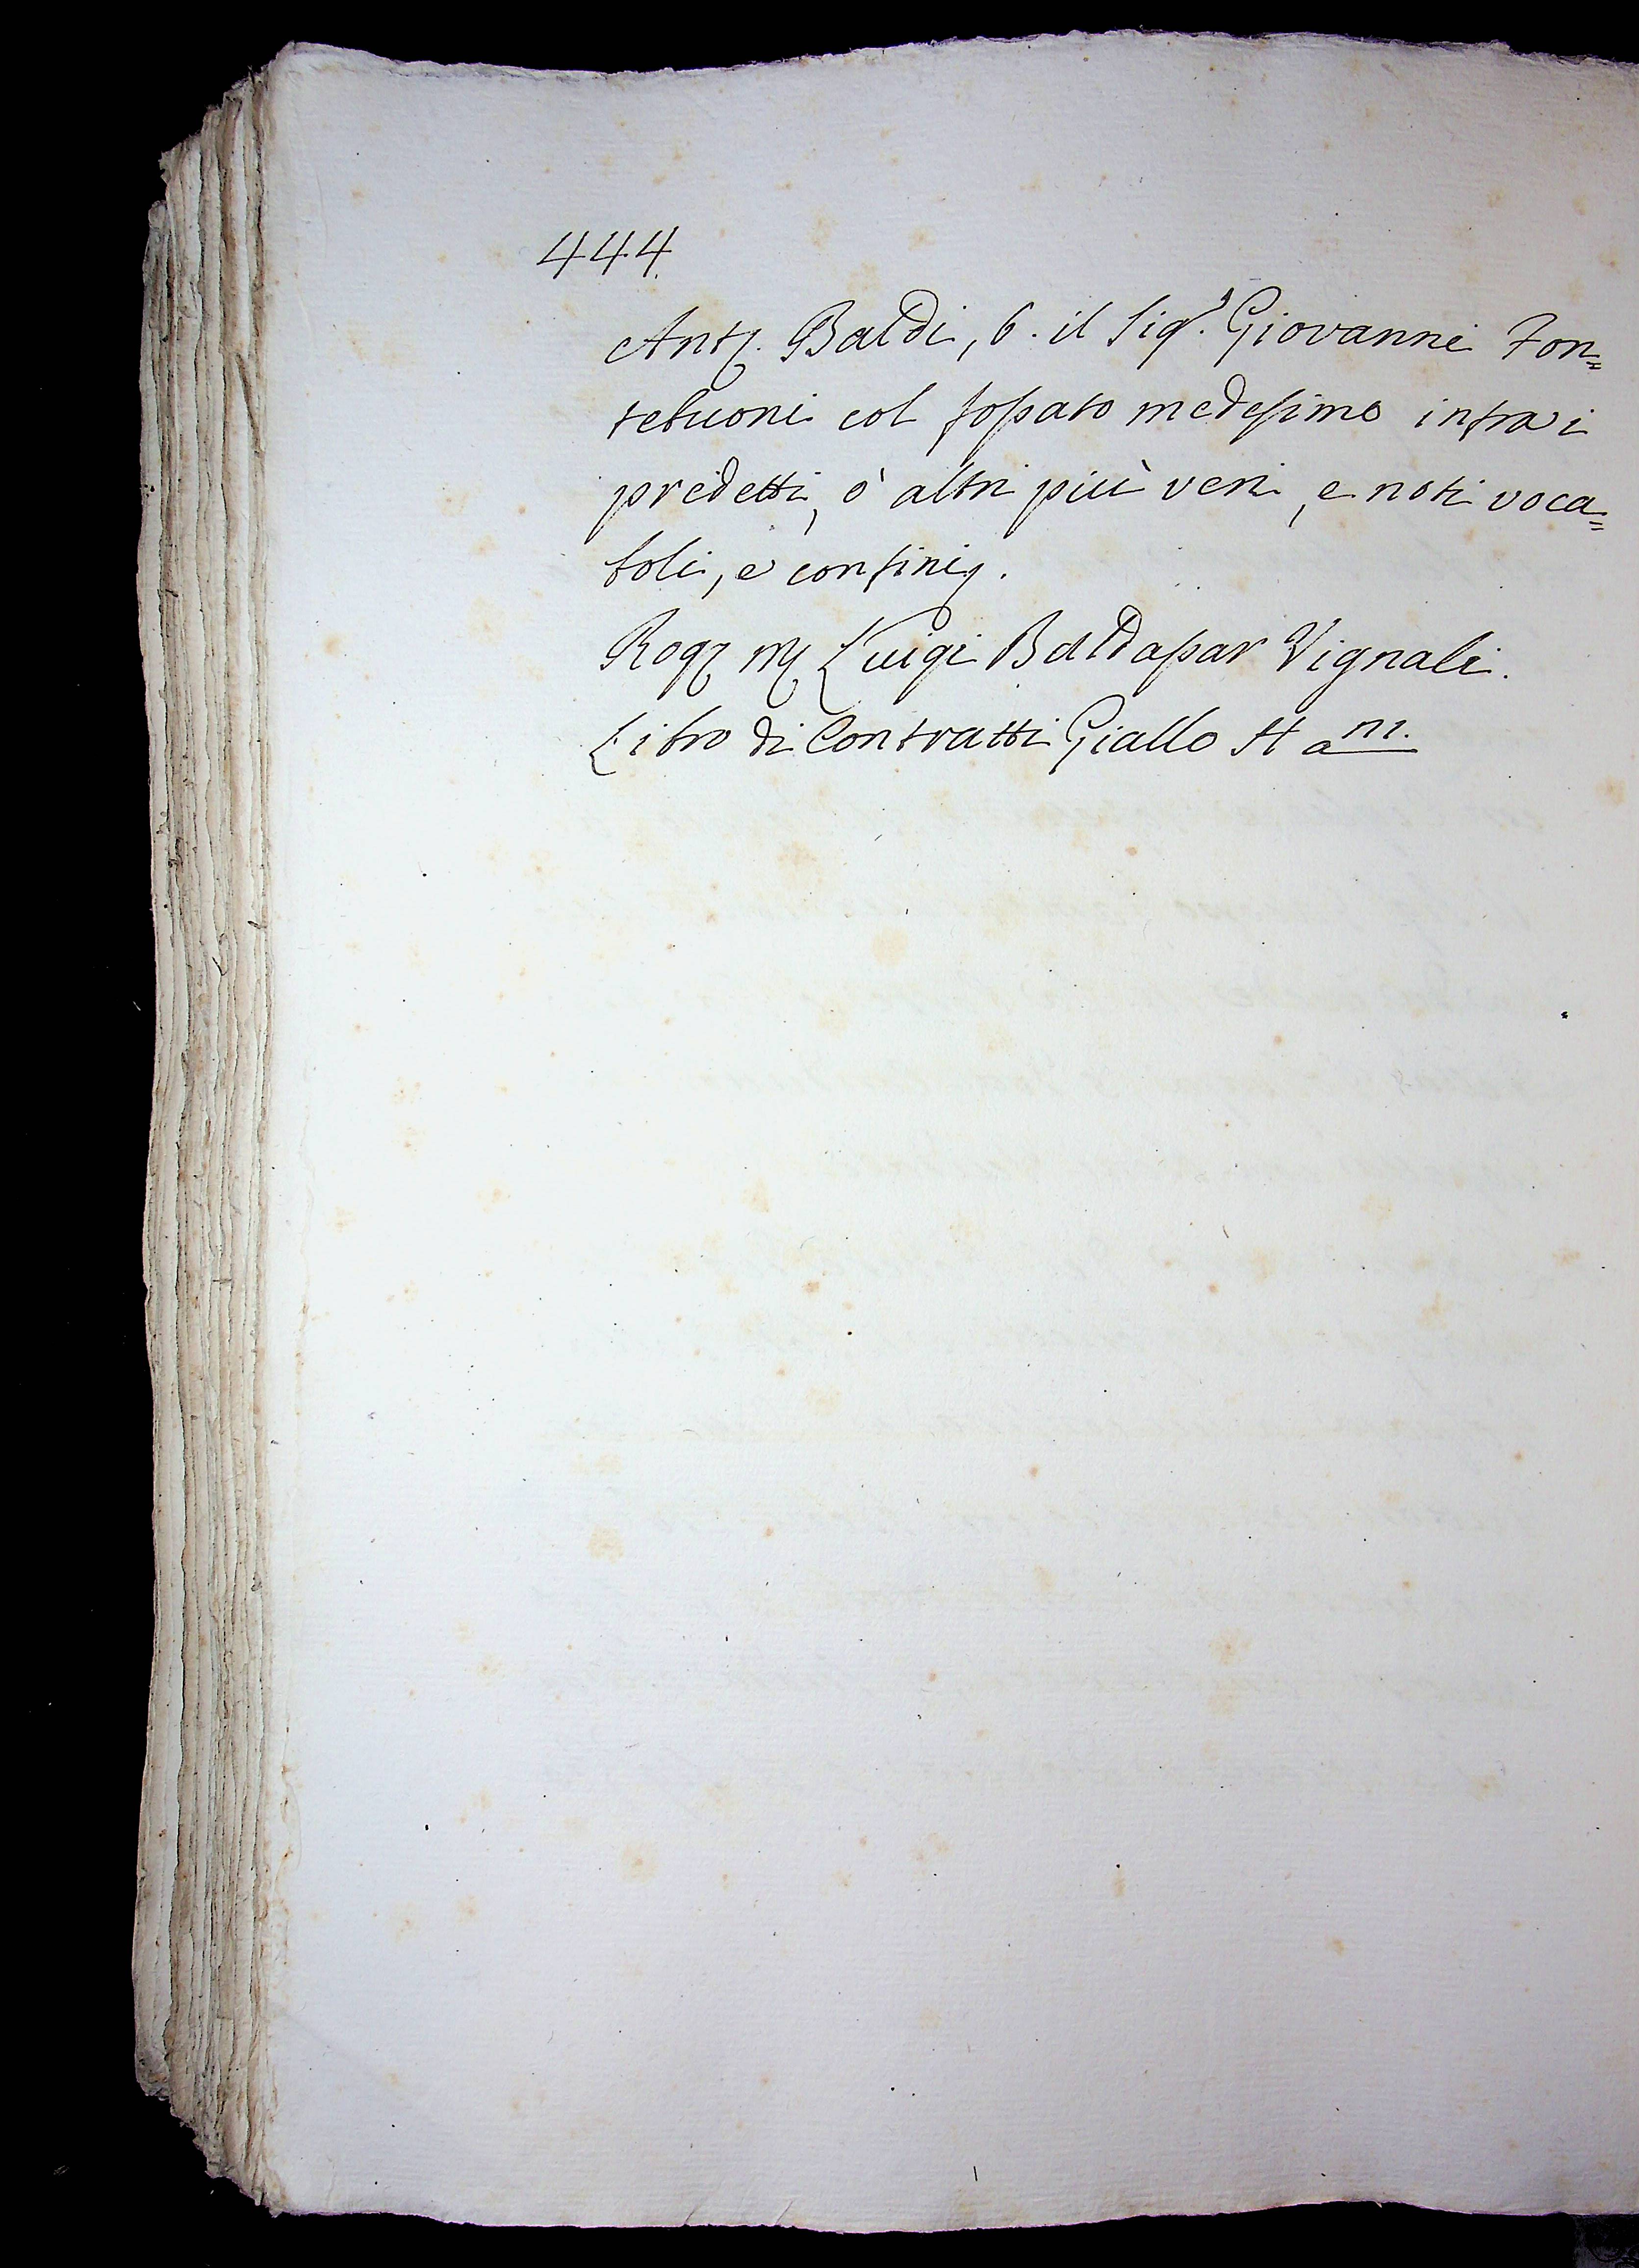 444.
Ant. Baldi, 6. il Sig.r Giovanni Fon=
tebuoni col fossato medesimo infra i
predetti, ò altri più veri, e noti voca=
boli, e confini.
Rog. Luigi Baldassar Vignali.
Libro di Contratti Giallo H a m.